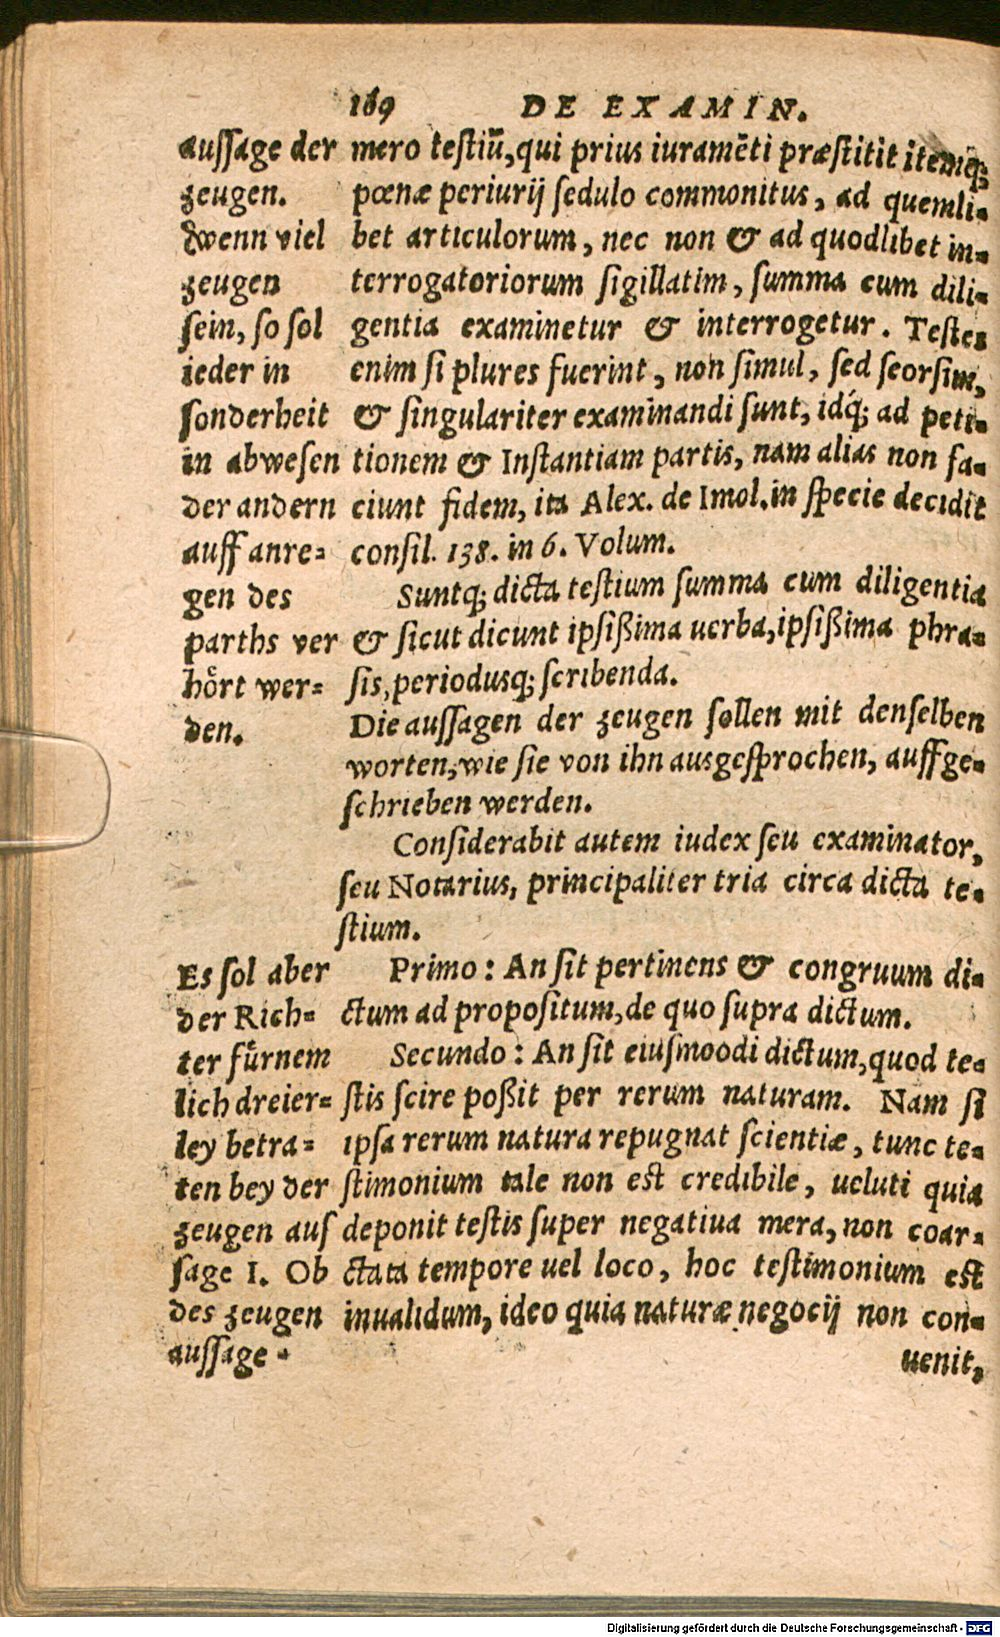 169 DE EXAMIN.
aussage der
zeugen.
Wenn viel
zeugen
sein, so sol
ieder in
sonderheit
in abwesen
der andern
auff anre-
gen des
parths ver
hoͤrt wer-
den.
mero testiũ, qui prius iuramẽti præstitit itemq́;
pœnæ periurij sedulo commonitus, ad quemli-
bet articulorum, nec non & ad quodlibet in-
terrogatoriorum sigillatim, summa cum dili-
gentia examinetur & interrogetur. Testes
enim si plures fuerint, non simul, sed seorsim,
& singulariter examinandi sunt, idq́; ad peti-
tionem & Instantiam partis, nam alias non fa-
ciunt fidem, ita Alex. de Imol. in specie decidit
consil. 138. in 6. Volum.
Suntq; dicta testium summa cum diligentia
& sicut dicunt ipsißima uerba, ipsißima phra-
sis, periodusq; scribenda.
Die aussagen der zeugen sollen mit denselben
worten, wie sie von ihn ausgesprochen, auffge-
schrieben werden.
Considerabit autem iudex seu examinator,
seu Notarius, principaliter tria circa dicta te-
stium.
Es sol aber
der Rich-
ter fuͤrnem
lich dreier-
ley betra-
ten bey der
zeugen aus
sage I. Ob
des zeugen
aussage
Primo: An sit pertinens & congruum di-
ctum ad propositum, de quo supra dictum.
Secundo: An sit eiusmoodi dictum, quod te-
stis scire poßit per rerum naturam. Nam si
ipsa rerum natura repugnat scientiæ, tunc te-
stimonium tale non est credibile, ueluti quia
deponit testis super negatiua mera, non coar-
ctata tempore uel loco, hoc testimonium est
inualidum, ideo quia naturæ negocij non con-
uenit,
Digitalisierung gefördert durch die Deutsche Forschungsgemeinschaft - DFG